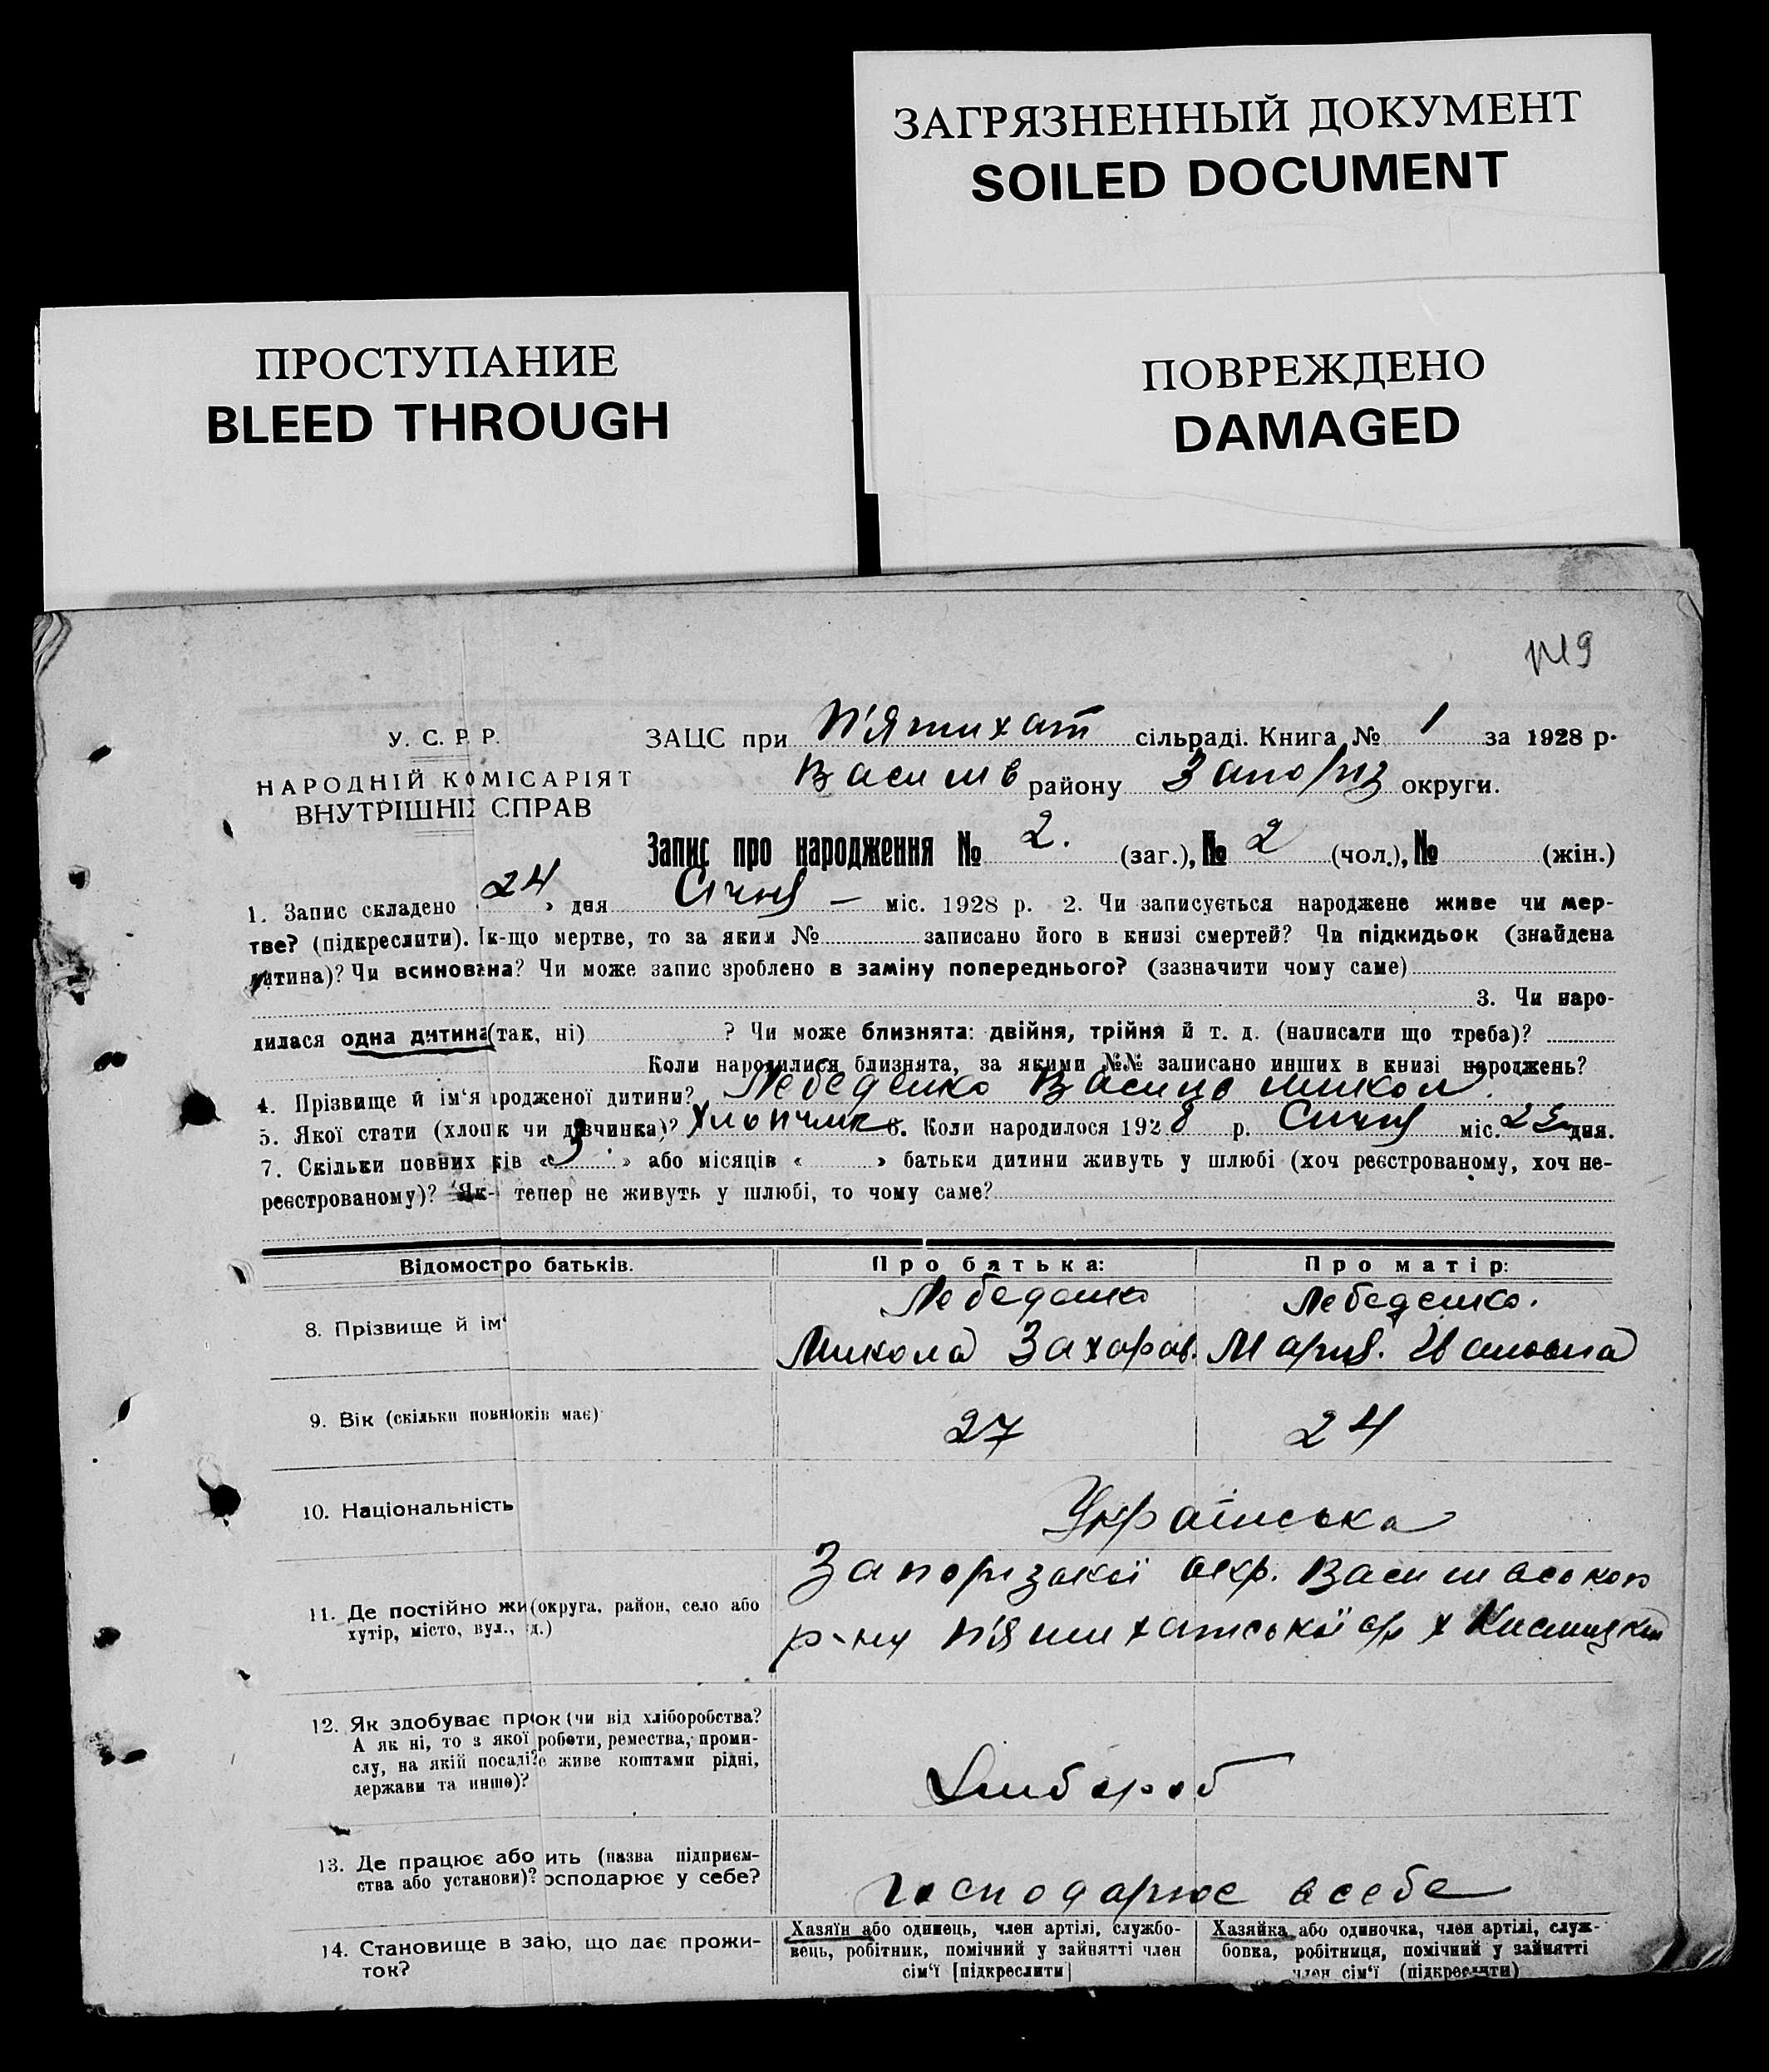 ЗАГРЯЗНЕННЫЙ ДОКУМЕНТ
SOILED DOCUMENT
ПРОСТУПАНИЕ
BLEED THROUGH
ПОВРЕЖДЕНО
DAMAGED
У. С. Р. Р.
НАРОДНІЙ КОМІСАРІЯТ
ВНУТРІШНІХ СПРАВ
ЗАЦС при П'ятихат сільраді. Книга № 1 за 1928 р.
Василів району Запоріз округи.
Запис про народження № 2. (заг.), № 2 (чол.), № (жін.)
1. Запис складено 24 » дня Січня — міс. 1928 р. 2. Чи записується народжене живе чи мер-
тве? (підкреслити). Як-що мертве, то за яким № записано його в книзі смертей? Чи підкидьок (знайдена
дитина)? Чи всиновлена? Чи може запис зроблено в заміну попереднього? (зазначити чому саме)
3. Чи наро-
дилася одна дитина (так, ні) ? Чи може близнята: двійня, трійня й т. д. (написати що треба)?
Коли народилися близнята, за якими №№ записано инших в книзі народжень?
4. Прізвище й ім'я народженої дитини? Лебеденко Василь Микол.
5. Якої стати (хлопчик чи дівчинка)? Хлопчик 6. Коли народилося 1928 р. Січня міс. 23 дня.
7. Скільки повних років « 3 » або місяців « » батьки дитини живуть у шлюбі (хоч реєстрованому, хоч не-
реєстрованому)? Як- тепер не живуть у шлюбі, то чому саме?
Відомост ро батьків. Про батька: Про матір:
8. Прізвище й ім'
Лебеденко Лебеденко.
Микола Захаров. Мария. Ивановна
9. Вік (скільки повн оків має) 27 24
10. Національність Українська
11. Де постійно жи (округа, район, село або
хутір, місто, вул., д.)
Запорізької окр. Василівського
р-ну П'ятихатської с/р х
12. Як здобуває пр ок (чи від хліборобства?
А як ні, то з якої роботи, ремества, проми-
слу, на якій посаді? е живе коштами рідні,
держави та инше)?
Хлібороб
13. Де працює або ить (назва підприєм-
ства або установи)? осподарює у себе?
господарює в себе
14. Становище в за ю, що дає прожи-
ток?
Хазяїн або одинець, член артілі, службо-
вець, робітник, помічний у зайнятті член
сім'ї [підкреслити]
Хазяйка або одиночка, член артілі, служ-
бовка, робітниця, помічний у зайнятті
член сім'ї (підкреслити)